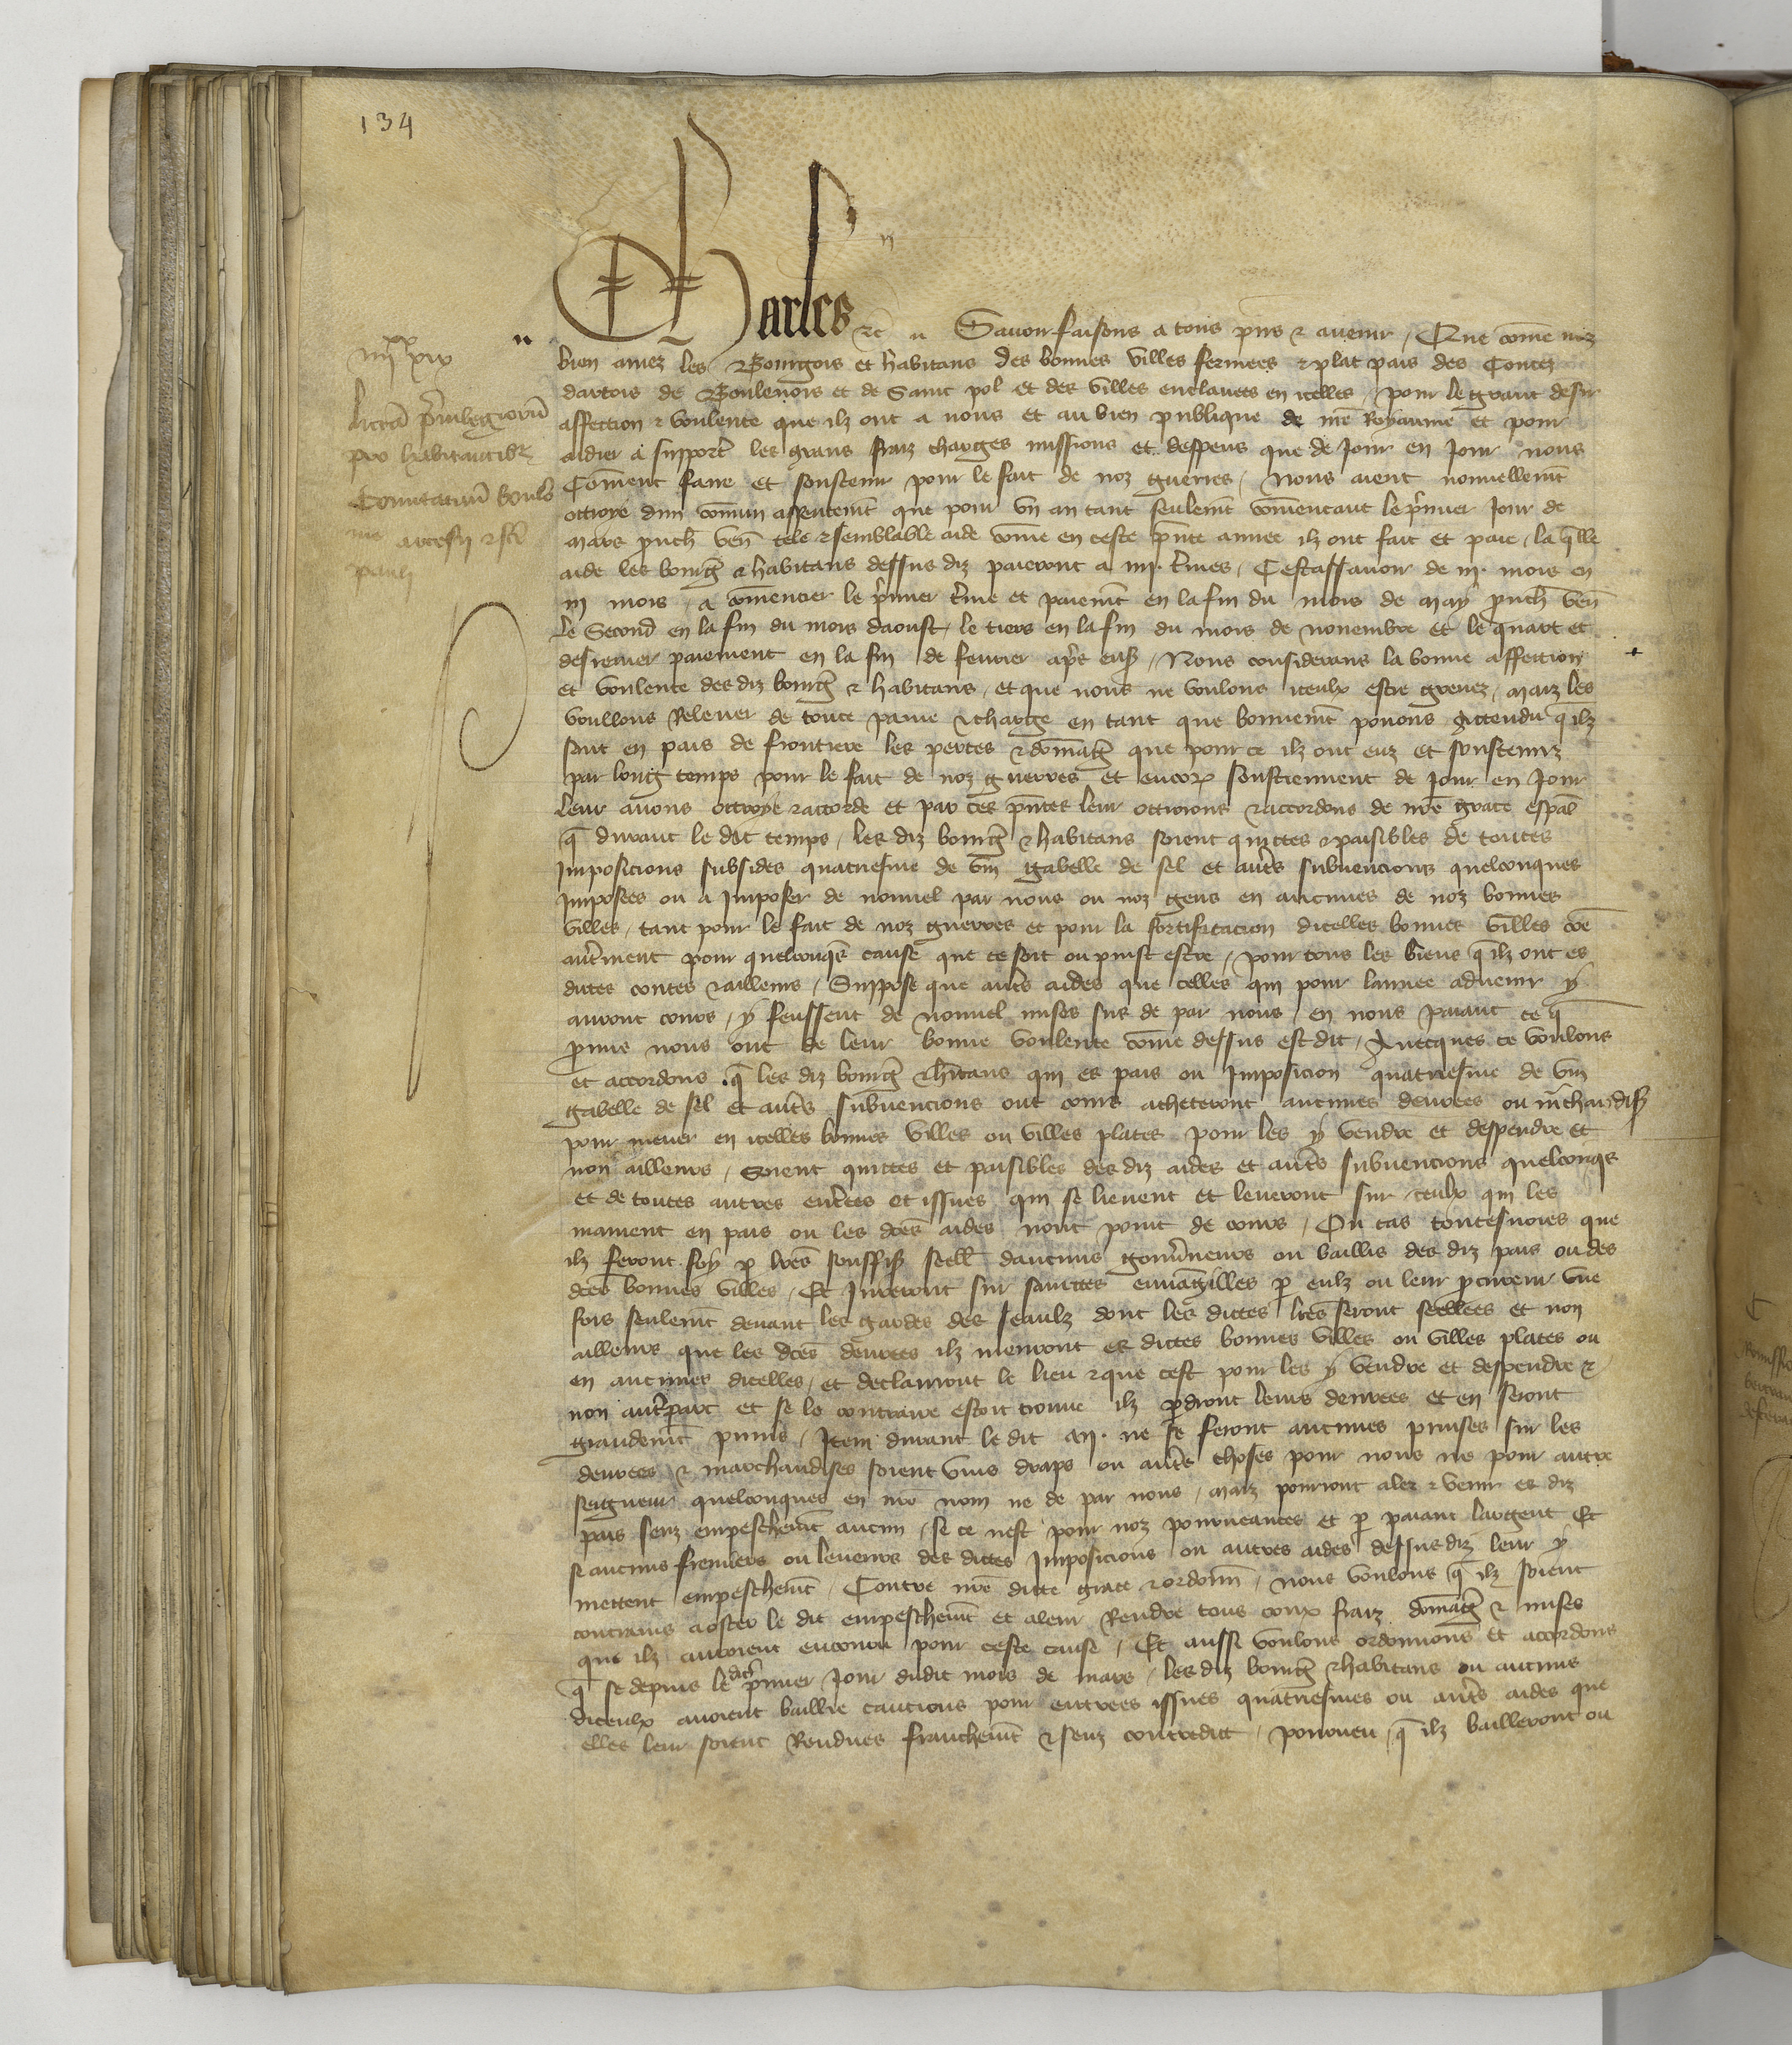 134
Charles etc Savoir faisons a tous pñs & avenir, Que cõme noz
bien amez les Bourgois et habitans des bonnes villes fermees & plat pais des Contez
dartois de Boulenois et de Saint pol et des villes enclavees en icelles, pour le grant desir
affection & voulente que ilz ont a nous et au bien publique de nr̃e Royaume et pour
aidier a support̃ les grans fraiz charges missions et despens que de Jour en Jour nous
Cõment faire et soustenir pour le fait de noz guerres, Nous aient nouvellem̃t
ottroye dun cõmun assentem̃t que pour un an tant seulem̃t cõmencant le p̃mier Jour de
Mars p̃uch vẽn tele & semblable aide cõme en ceste p̃nte annee ilz ont fait et paie, la q̃lle
aide les bourg̃ & habitans dessus diz paieront a iiij. t̃mes, Cestassavoir de iij. mois en
iij mois, a cõmencier le p̃mier t̃me et paiem̃t en la fin du mois de May p̃uch vẽn
Le Second en la fin du mois daoust, le tiers en la fin du mois de novembre et le quart et
desrenier paiement en la fin de fevrier ap̃s ens̃, Nous considerans la bonne affection
et voulente des diz bourg̃ & habitans, et que nous ne voulons iceulx estre grevez, Maiz les
voullons Relever de toute paine & charge en tant que bonnem̃t povons Attendu q̃ ilz
sont en pais de frontiere les pertes & dom̃ag̃ que pour ce ilz ont euz et soustenuz
par long temps pour le fait de noz guerres et encor̃ soustiennent de Jour en Jour
Leur avons ottroye & accorde et par ces p̃ntes leur ottroions & accordons de nr̃e grace esp̃al
q̃ durant le dit temps, les diz bourg̃ & habitans soient quittes & paisibles de toutes
Imposicions subsides quatriesme de vin gabelle de sel et aut̃s subvencions quelconques
Imposees ou a Imposer de nouvel par nous ou noz gens en aucunes de noz bonnes
villes, tant pour le fait de noz guerres et pour la fortificacion dicelles bonnes villes cõe
aut̃ment pour quelconq̃s cause que ce soit ou puist estre, pour tous les biens q̃ ilz ont es
dites contes & ailleurs, Suppose que aut̃s aides que celles qui pour lannee advenir y
auront cours, y feussent de nouvel mises sus de par nous, en nous paiant ce q̃
p̃mis nous ont de leur bonne voulente cõme dessus est dit, Avecques ce voulons
et accordons q̃ les diz bourg̃ & hĩtans qui es pais ou Imposicion quatriesme de vin
gabelle de sel et aut̃s subvencions ont cours acheteront aucunes denrees ou m̃chandis̃
pour mener en icelles bonnes villes ou villes plates pour les y vendre et despendre et
non ailleurs, Soient quittes et paisibles des diz aides et aut̃s subvencions quelconq̃s
et de toutes autres ent̃ees et issues qui se lievent et leveront sur ceulx qui les
mainent en pais ou les dc̃es aides nont point de cours, Ou cas toutesvoies que
ilz feront foy p̃ lr̃es souffis̃ seell̃ daucuns gouv̄neurs ou baillis des diz pais ou des
dc̃es bonnes villes, Et Jureront sur saintes euvãgilles p̃ eulz ou leur p̃cureur une
fois seulem̃t devant les gardes des seaulz dont les dictes lr̃es seront seellees et non
ailleurs que les dc̃es denrees ilz menront es dictes bonnes villes ou villes plates ou
en aucunes dicelles, et declairront le lieu & que cest pour les y vendre et despendre &
non aut̃part et se le contraire estoit trouve ilz p̃dront leurs denrees et en seront
grandem̃t punis, Item durant le dit an. ne se feront aucunes prinses sur les
denrees & marchandises soient vins draps ou aut̃s choses pour nous ne pour autre
seigneur quelconques en nr̃e nom ne de par nous, Maiz pourront aler & venir es diz
pais senz empeschem̃t aucun, se ce nest pour noz pourveances et p̃ paiant largent Et
se aucuns fermiers ou leveurs des dittes Imposicions ou autres aides dessus diz leur y
mettent empeschem̃t, Contre nr̃e ditte grace & ordonñ, nous voulons q̃ ilz soient
contrains a oster le dit empeschem̃t et a leur Rendre tous coux fraiz dom̃ag̃ & mises
que ilz auroient encouru pour ceste cause, Et aussi voulons ordonnons et accordons
q̃ se depuis le dit p̃mier Jour dudit mois de mars, les diz bourg̃ & habitans ou aucuns
diceulx avoient baillie caucions pour entrees issues quatriesmes ou aut̃s aides que
elles leur soient Rendues franchem̃t & senz contredit, pourveu q̃ ilz bailleront ou
iiijxx xix
Litrã p̃vilegiorũ
pro habitantibz
Comitatuũ boulõ
nie artesij & sc̃i
pauli